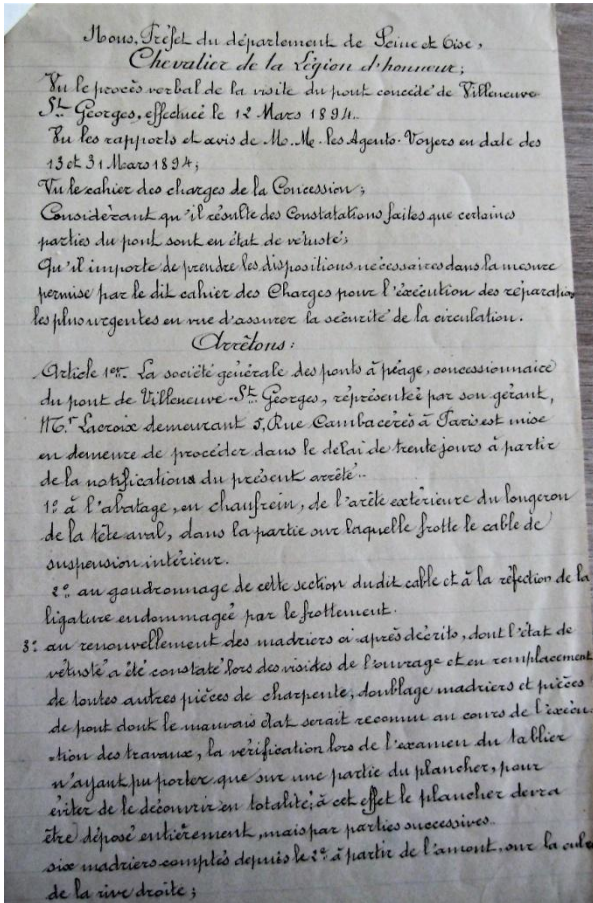 Nous, Préfet du département de Seine et Oise,
Chevalier de la Légion d'honneur;
Vu le procès verbal de la visite du pont concédé de Villeneuve
St Georges, effectuée le 12 Mars 1894.
Vu les rapports et avis de M.M. les Agents-Voyers en date des
13 et 31 Mars 1894;
Vu le cahier des charges de la Concession;
Considérant qu'il résulte des Constatations faites que certaines
parties du pont sont en état de vétusté;
Qu'il importe de prendre les dispositions nécessaires dans la mesure
permise par le dit cahier des Charges pour l'éxécution des réparations
les plus urgentes en vue d'assurer la sécurité de la circulation.
Arrêtons:
Article 1er. La société générale des ponts à péage, concessionnaire
du pont de Villeneuve-St Georges, représentée par son gérant,
Mr Lacroix demeurant 5, Rue Cambacérès à Paris est mise
en demeure de procéder dans le délai de trente jours à partir
de la notifications du présent arrêté..
1º à l'abatage, en chanfrein, de l'arête extérieure du longeron
de la tête aval, dans la partie sur laquelle frotte le cable de
suspension intérieur.
2º au goudronnage de cette section dudit cable et à la réfection de la
ligature endommagée par le frottement.
3º au renouvellement des madriers ci-après décrits, dont l'état de
vétusté a été constaté lors des visides de l'ouvrage et en remplacement
de toutes autres pièces de charpente, doublage madriers et pièces
de pont dont le mauvais état serait reconnu au cours de l'éxécu
=tion des travaux, la vérification lors de l'examen du tablier
n'ayant pu porter que sur une partie du plancher, pour
éviter de le découvrir en totalité; à cet effet le plancher devra
être déposé entièrement, mais par parties successives.
six madriers comptés depuis le 2º à partir de l'amont, sur la
de la rive droite;